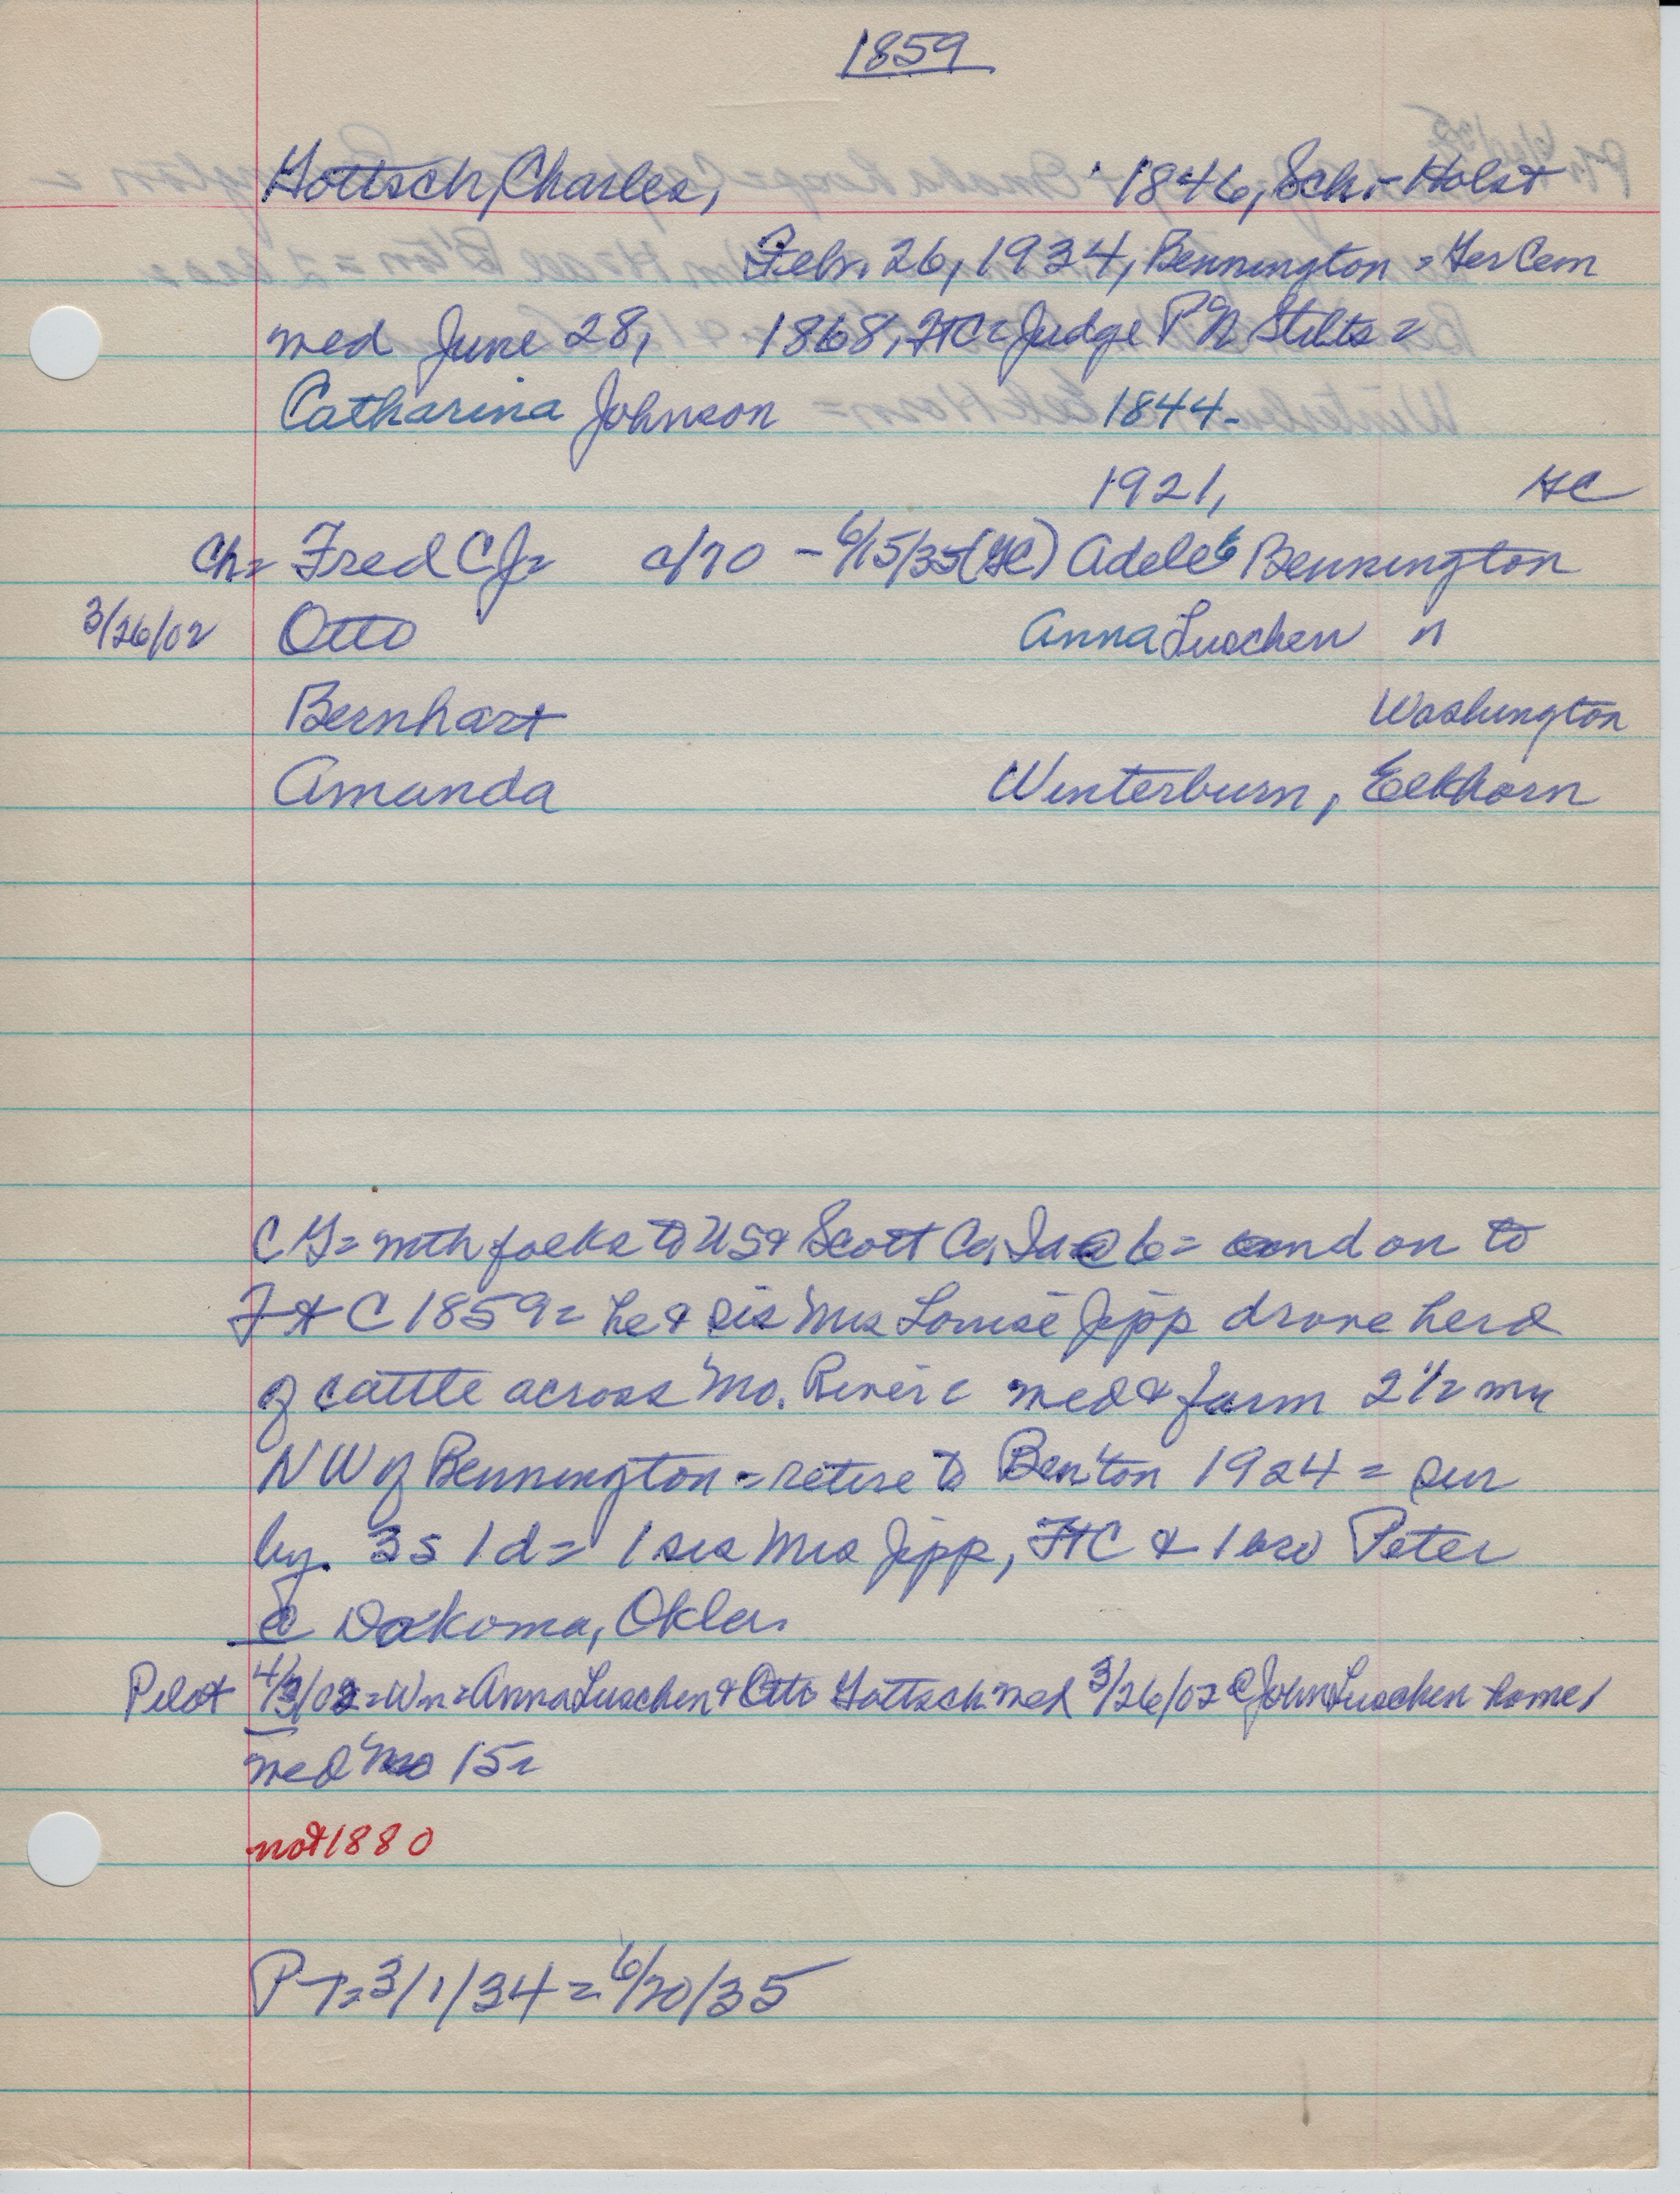 1859
Gottsch, Charles, 1846, Sch.-Holst
Feb. 26, 1934, Bennington = Ger Cem
med June 28, 1868, Ft C = Judge P N Stilts =
Catharina Johnson 1844-
1921, GC
Ch = Fred C J = c/70 - 6/15/35 (GC) Adele Bennington
3/26/02 Otto Anna Luschen "
Bernhart Washington
Amanda Winterburn, Elkhorn
CG = with folks to US & Scott Co, Ia @ 6 = and on to
Ft C 1859 = he & sis Mrs Louise Jipp drove herd
of cattle across Mo. River = med & farm 2 1/2 mi
NW of Bennington = retire to Ben'ton 1924 = sur
by. 3 s 1 d = 1 sis Mrs Jipp, Ft C & 1 bro Peter
@ Dakoma, Okla.
Pilot 4/3/02 = Wn = Anna Luschen & Otto Gottsch med 3/26/02 @ John Luschen home,
med 15 =
not 1880
PT = 3/1/34 = 6/20/35